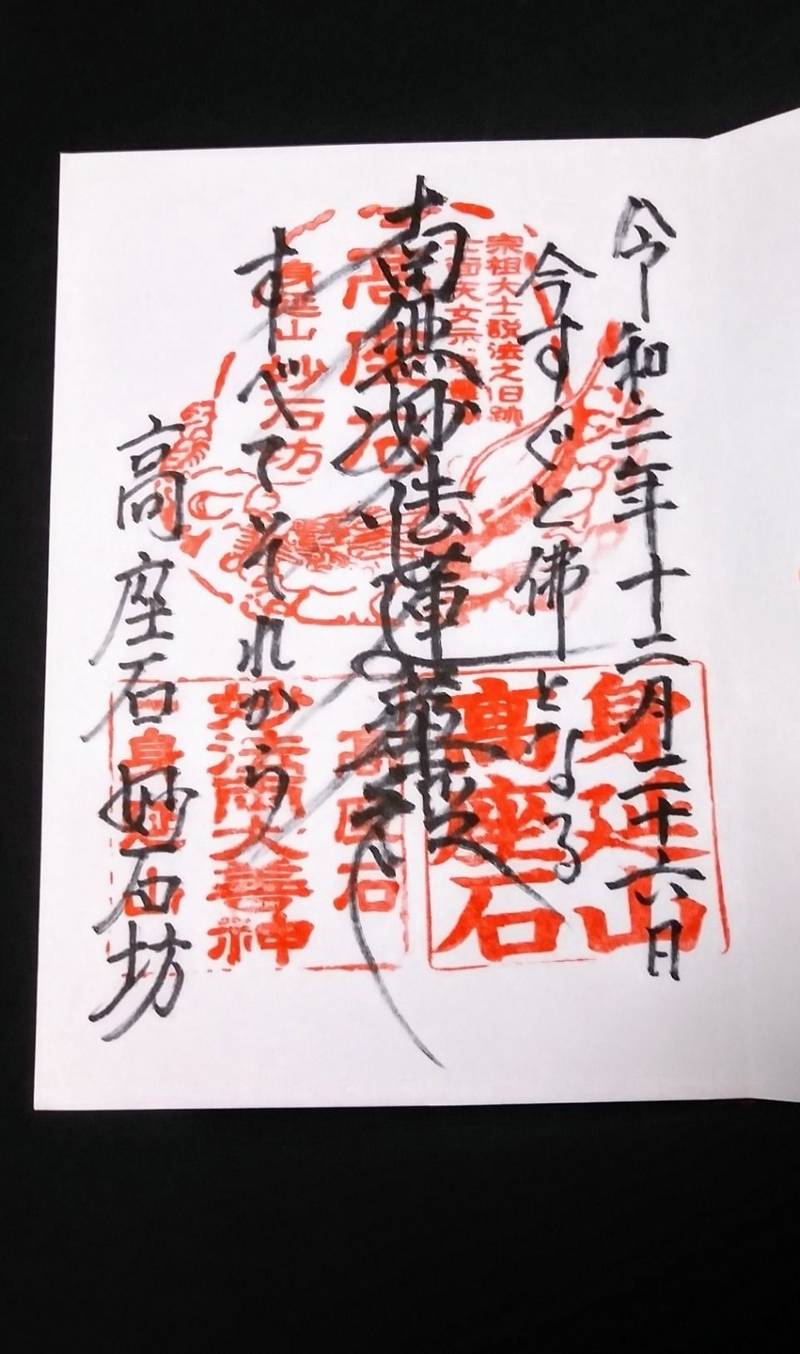 令和二年十二月二十六日
今すぐと佛となる
南無妙法蓮華経
すべてそれから
高座石 妙石坊
宗祖大士説法之旧跡
高座石
身延山 妙石坊
身延山
高座石
高座石
妙法両大善神
身延山